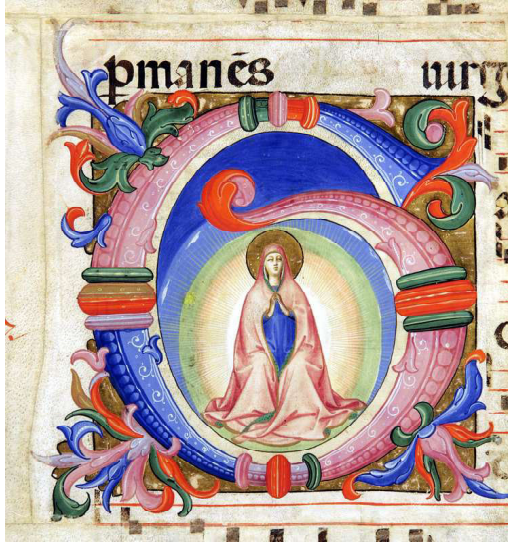 pmanēs uirg